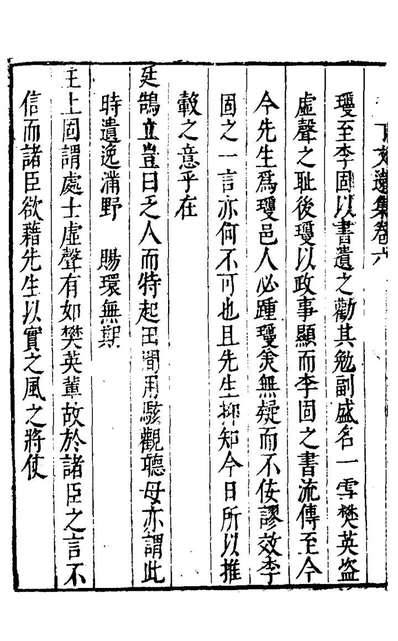 文遺集卷六
瓊至李固以書遺之勸其勉副盛名一雪樊英盜
虛聲之耻後瓊以政事顯而李固之書流傳至今
今先生爲瓊邑人必踵瓊矣無疑而不佞謬效李
固之一言亦何不可也且先生抑知今日所以推
轂之意乎在
廷鵠立豈曰乏人而特起田間用駭觀聽毋亦謂此
時遺逸滿野　賜環無期
主上固謂處士虛聲有如樊英輩故於諸臣之言不
信而諸臣欲藉先生以實之風之將使